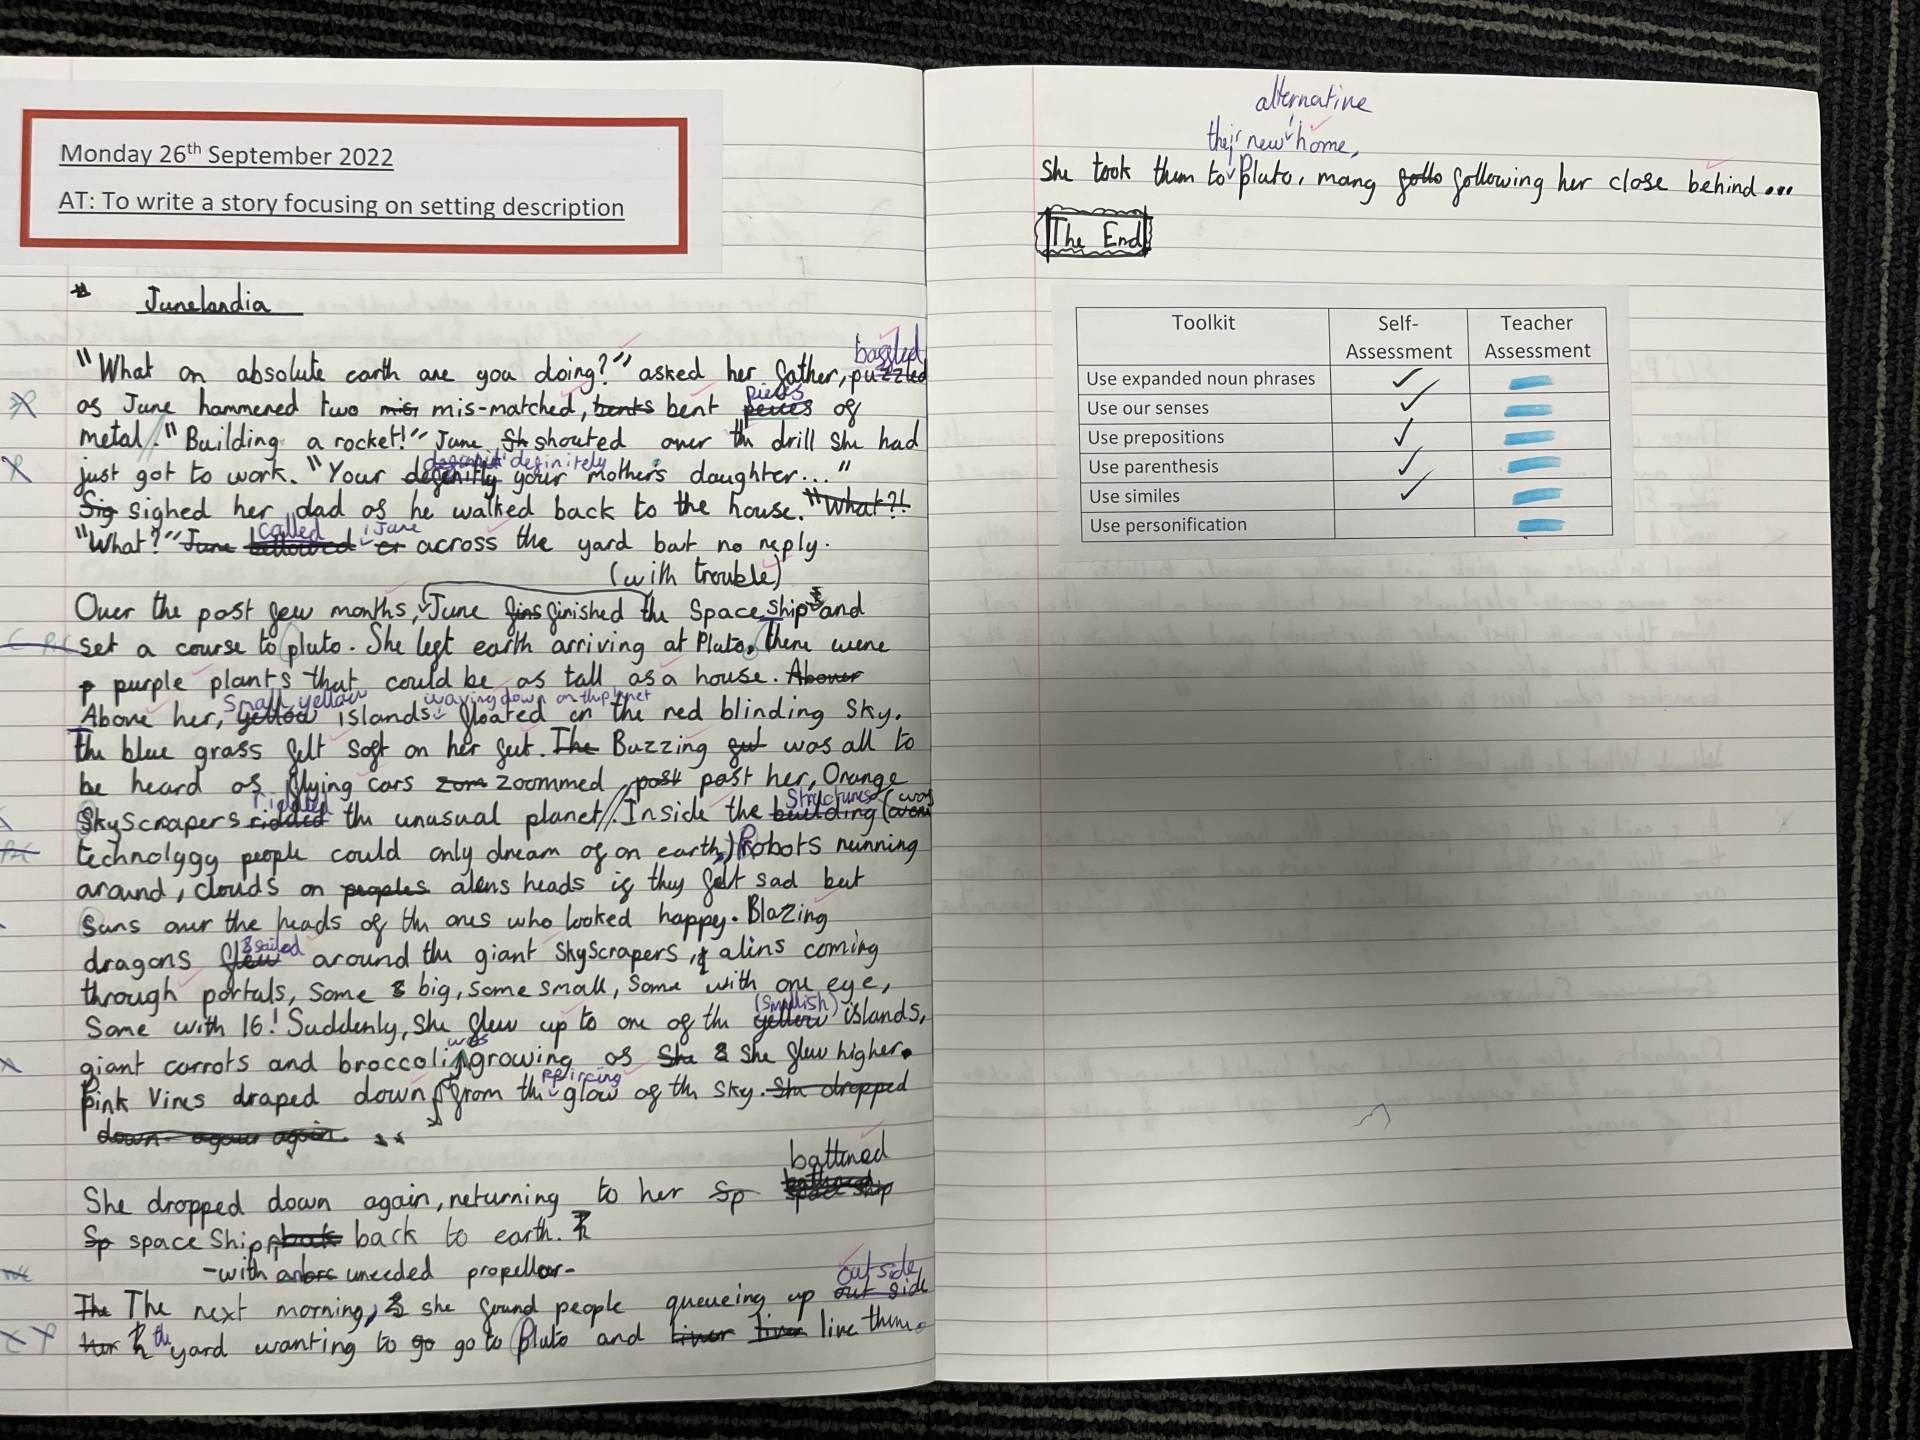 Monday 26th September 2022
AT: To write a story focusing on setting description
Junelandia
baffled
"What on absolute earth are you doing?" asked her father, puzzled
pieces
as June hammered two mis mis-matched, bents bent peices of
metal. "Building a rocket!" June Sh shouted over the drill she had
definitely
just got to work. "Your defenitly your mother's daughter..."
Sig sighed her dad as he walked back to the house. "What?!
called June
"What?" June bellowed across the yard but no reply.
(with trouble)
Over the past few months, June fins finished the Space ship and
set a course to pluto. She left earth arriving at Pluto. there were
p purple plants that could be as tall as a house. Abover
Small yellow waving down on the planet
Above her, yellow islands floated in the red blinding sky.
The blue grass felt soft on her feet. The Buzzing was all to
be heard as flying cars zom zoommed past past her, Orange
riddled Structures (was
SkyScrapers ridded the unusual planet. Inside the building (
technolygy people could only dream of on earth,) Robots running
around, clouds on peoples aliens heads if they felt sad but
suns over the heads of the ones who looked happy. Blazing
sailed
dragons flew around the giant SkyScrapers, alins coming
through portals, some big, some small, some with one eye,
(Smallish)
Some with 16! Suddenly, she flew up to one of the yellow islands,
was
giant carrots and broccoli growing as She she flew higher.
peircing
Pink Vines draped down from the glow of the sky. She dropped
down again.
battered
She dropped down again, returning to her Sp space ship
Sp space Ship back back to earth.
-with uneeded propellor-
outside
The The next morning, she found people queueing up out side
the
her yard wanting to go go to Pluto and live there.
alternative
their new home,
She took them to Pluto, many follo following her close behind...
The End
Toolkit Self-Assessment Teacher Assessment
Use expanded noun phrases ✓
Use our senses ✓
Use prepositions ✓
Use parenthesis ✓
Use similes ✓
Use personification